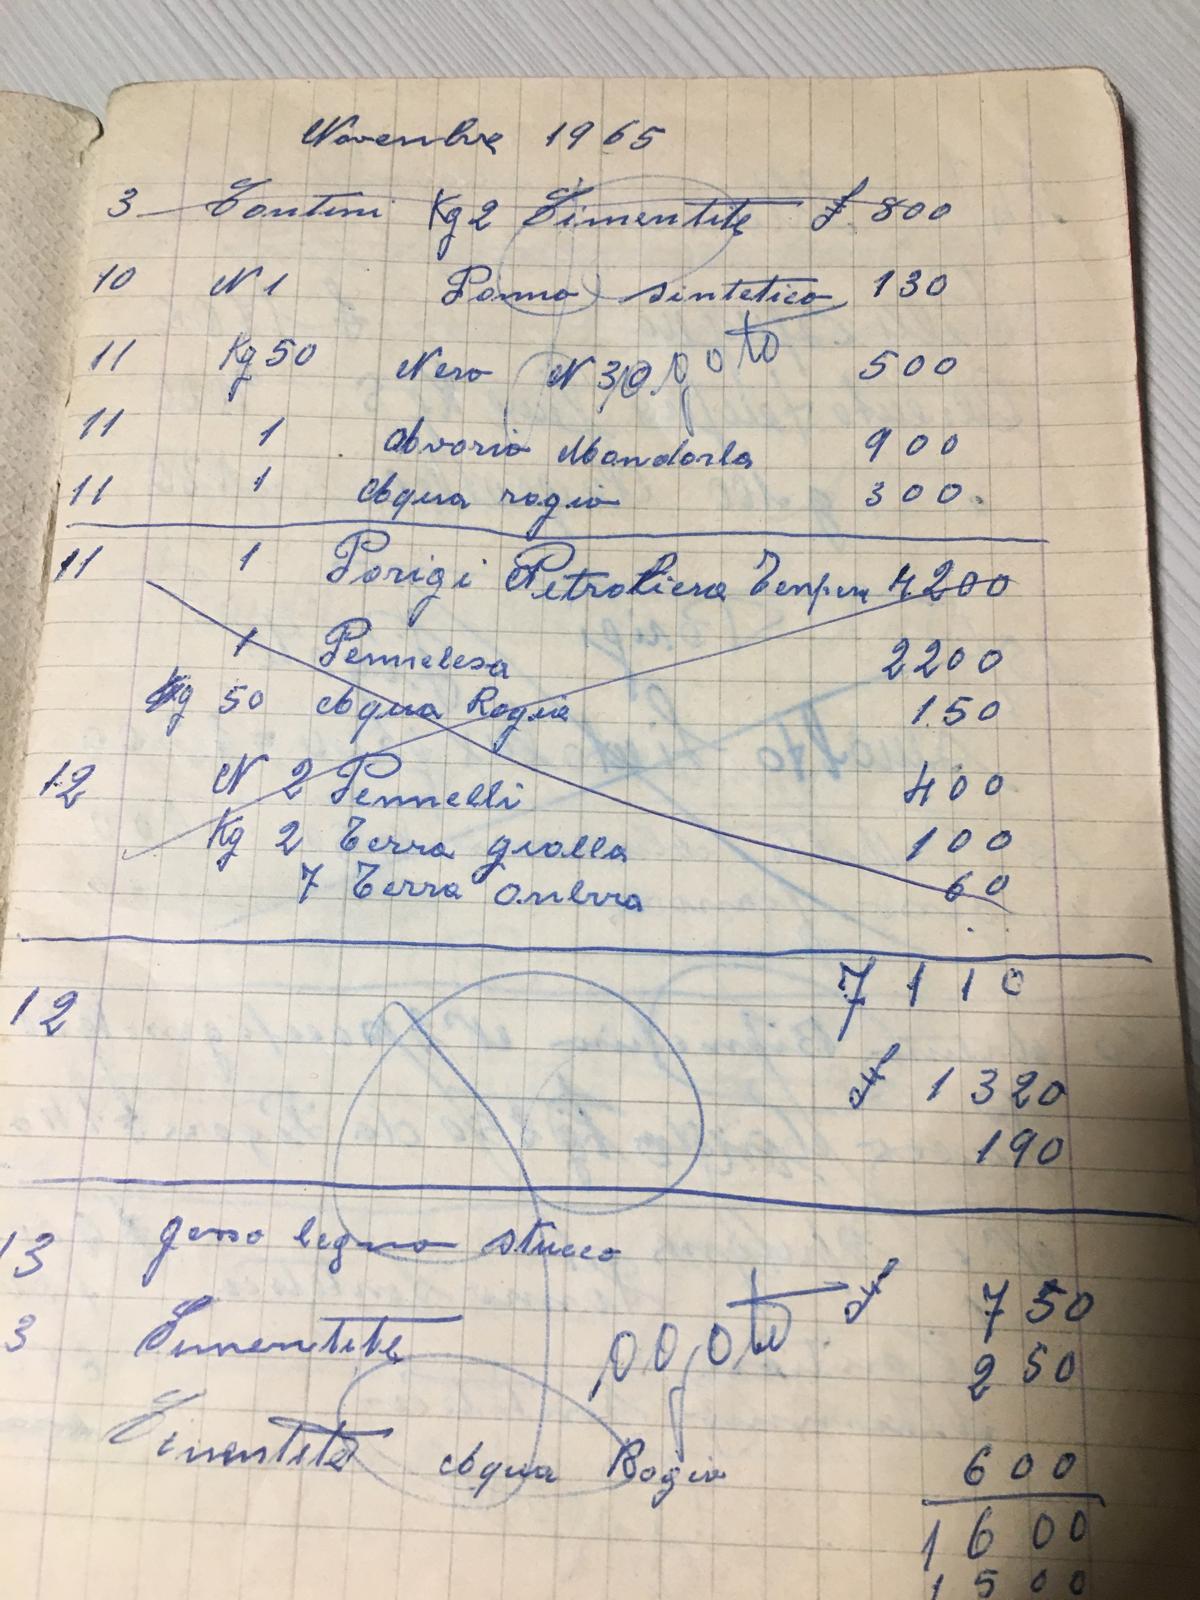 Novembre 1965
3 Tontini Kg 2 Cimentite £ 800
10 N 1 Pomo sintetico 130
11 Kg 50 Nero N 30 500
pagato
11 1 Avorio Mandorla 900
11 1 Aqua ragia 300
11 1 Parigi Petroliera Tempera 4200
1 Pennelesa 2200
Kg 50 Aqua Ragia 150
12 N 2 Pennelli 400
Kg 2 Terra gialla 100
7 Terra Ombra 60
7110
12
1320
190
13 gesso legno stucco
750
3 Cimentite pagato
250
Cimentite Aqua Ragia 600
1600
1500